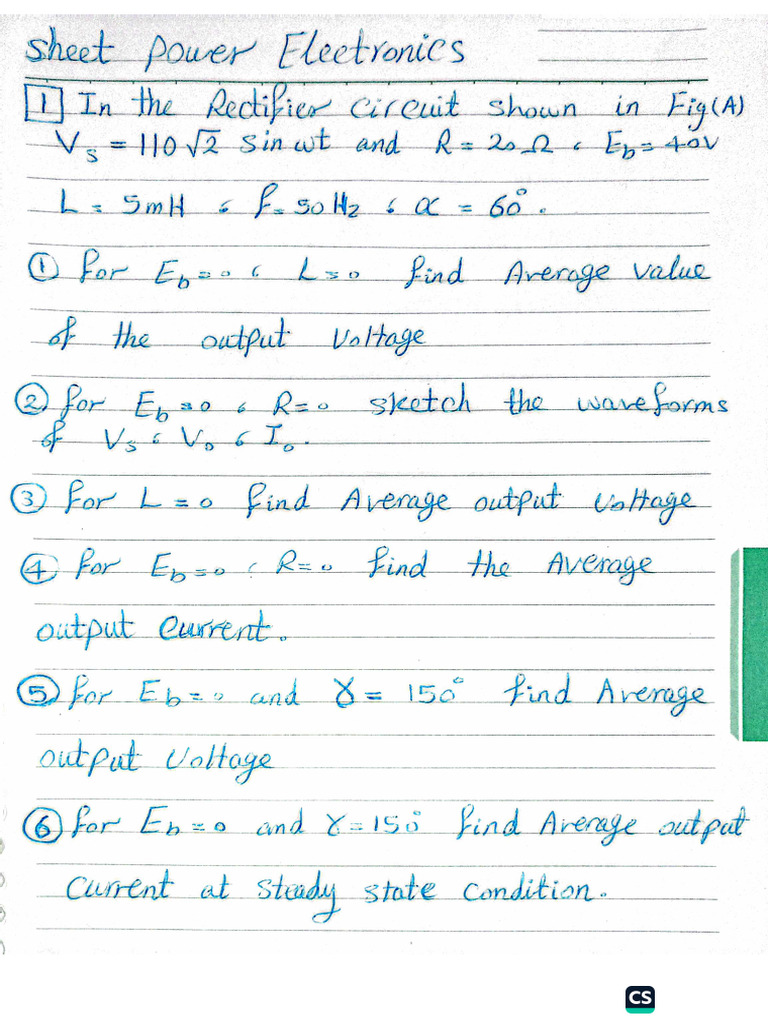 Sheet Power Electronics
1 In the Rectifier circuit shown in Fig(A)
Vs = 110√2 sin wt and R = 20Ω ، Eb = 40V
L = 5mH ، f = 50Hz ، α = 60°.
① for Eb = 0 ، L = 0 find Average value
of the output Voltage
② for Eb = 0 ، R = 0 sketch the waveforms
of Vs ، Vo ، Io.
③ for L = 0 find Average output voltage
④ for Eb = 0 ، R = 0 find the Average
output Current.
⑤ for Eb = 0 and γ = 150° find Average
output Voltage
⑥ for Eb = 0 and γ = 150° find Average output
Current at steady state condition.
CS